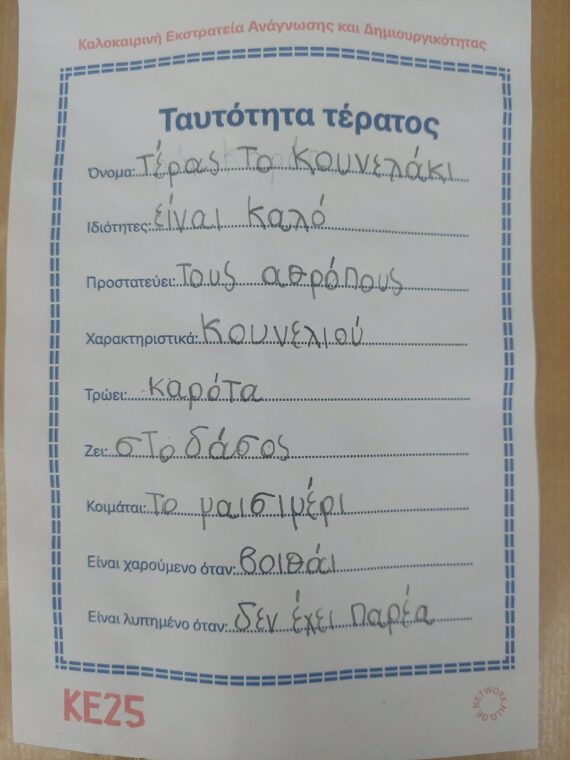 Καλοκαιρινή Εκστρατεία Ανάγνωσης και Δημιουργικότητας
Ταυτότητα τέρατος
Όνομα: τέρας το κουνελάκι
Ιδιότητες: είναι καλό
Προστατεύει: τους αθρόπους
Χαρακτηριστικά: κουνελιού
Τρώει: καρότα
Ζει: στο δάσος
Κοιμάται: το μαισιμέρι
Είναι χαρούμενο όταν: βοιθάι
Είναι λυπημένο όταν: δεν έχει παρέα
ΚΕ25
NETWORK.NLG.GR